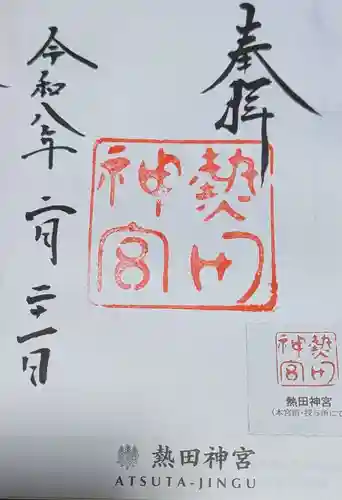 奉拝
熱田
神宮
令和八年二月二十一日
熱田
神宮
熱田神宮
(本宮前・授与所にて
熱田神宮
ATSUTA-JINGU